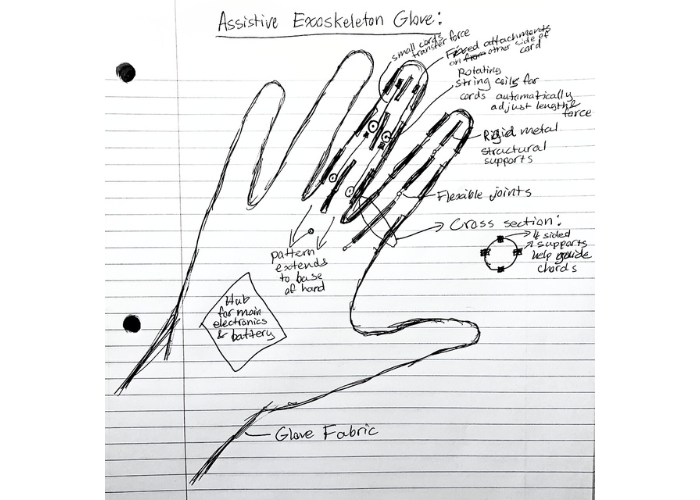 Assistive Exoskeleton Glove:
small cords
transfer force
Fixed attachments
on from other side of
cord
Rotating
string coils for
cords automatically
adjust length
force
Rigid metal
structural
supports
Flexible joints
Cross section:
4 sided
supports
help guide
chords
pattern
extends
to base
of hand
Hub
for main
electronics
& battery
Glove Fabric